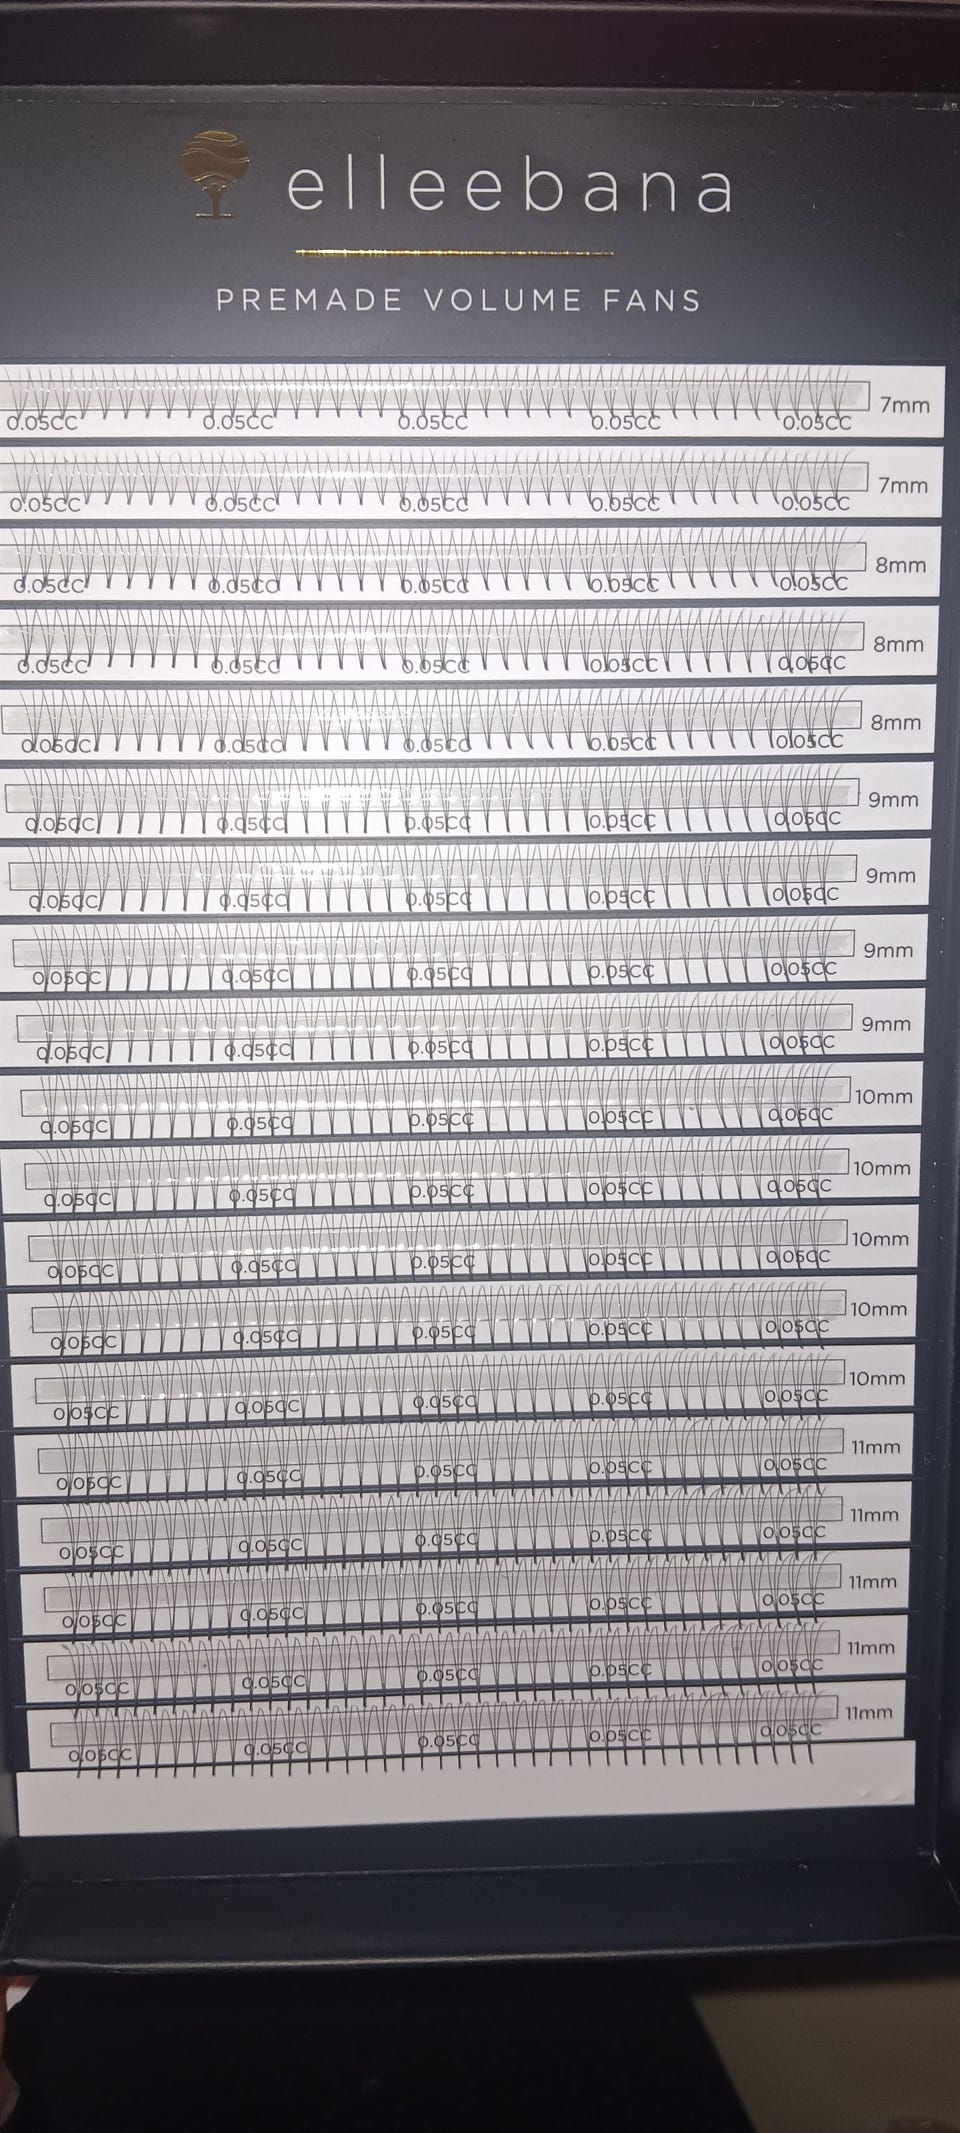 elleebana
PREMADE VOLUME FANS
7mm
0.05CC 0.05CC 0.05CC 0.05CC 0.05CC
7mm
0.05CC 0.05CC 0.05CC 0.05CC 0.05CC
8mm
0.05CC 0.05CC 0.05CC 0.05CC 0.05CC
8mm
0.05CC 0.05CC 0.05CC 0.05CC 0.05CC
8mm
0.05CC 0.05CC 0.05CC 0.05CC 0.05CC
9mm
0.05CC 0.05CC 0.05CC 0.05CC 0.05CC
9mm
0.05CC 0.05CC 0.05CC 0.05CC 0.05CC
9mm
0.05CC 0.05CC 0.05CC 0.05CC 0.05CC
9mm
0.05CC 0.05CC 0.05CC 0.05CC 0.05CC
10mm
0.05CC 0.05CC 0.05CC 0.05CC 0.05CC
10mm
0.05CC 0.05CC 0.05CC 0.05CC 0.05CC
10mm
0.05CC 0.05CC 0.05CC 0.05CC 0.05CC
10mm
0.05CC 0.05CC 0.05CC 0.05CC 0.05CC
10mm
0.05CC 0.05CC 0.05CC 0.05CC 0.05CC
11mm
0.05CC 0.05CC 0.05CC 0.05CC 0.05CC
11mm
0.05CC 0.05CC 0.05CC 0.05CC 0.05CC
11mm
0.05CC 0.05CC 0.05CC 0.05CC 0.05CC
11mm
0.05CC 0.05CC 0.05CC 0.05CC 0.05CC
11mm
0.05CC 0.05CC 0.05CC 0.05CC 0.05CC